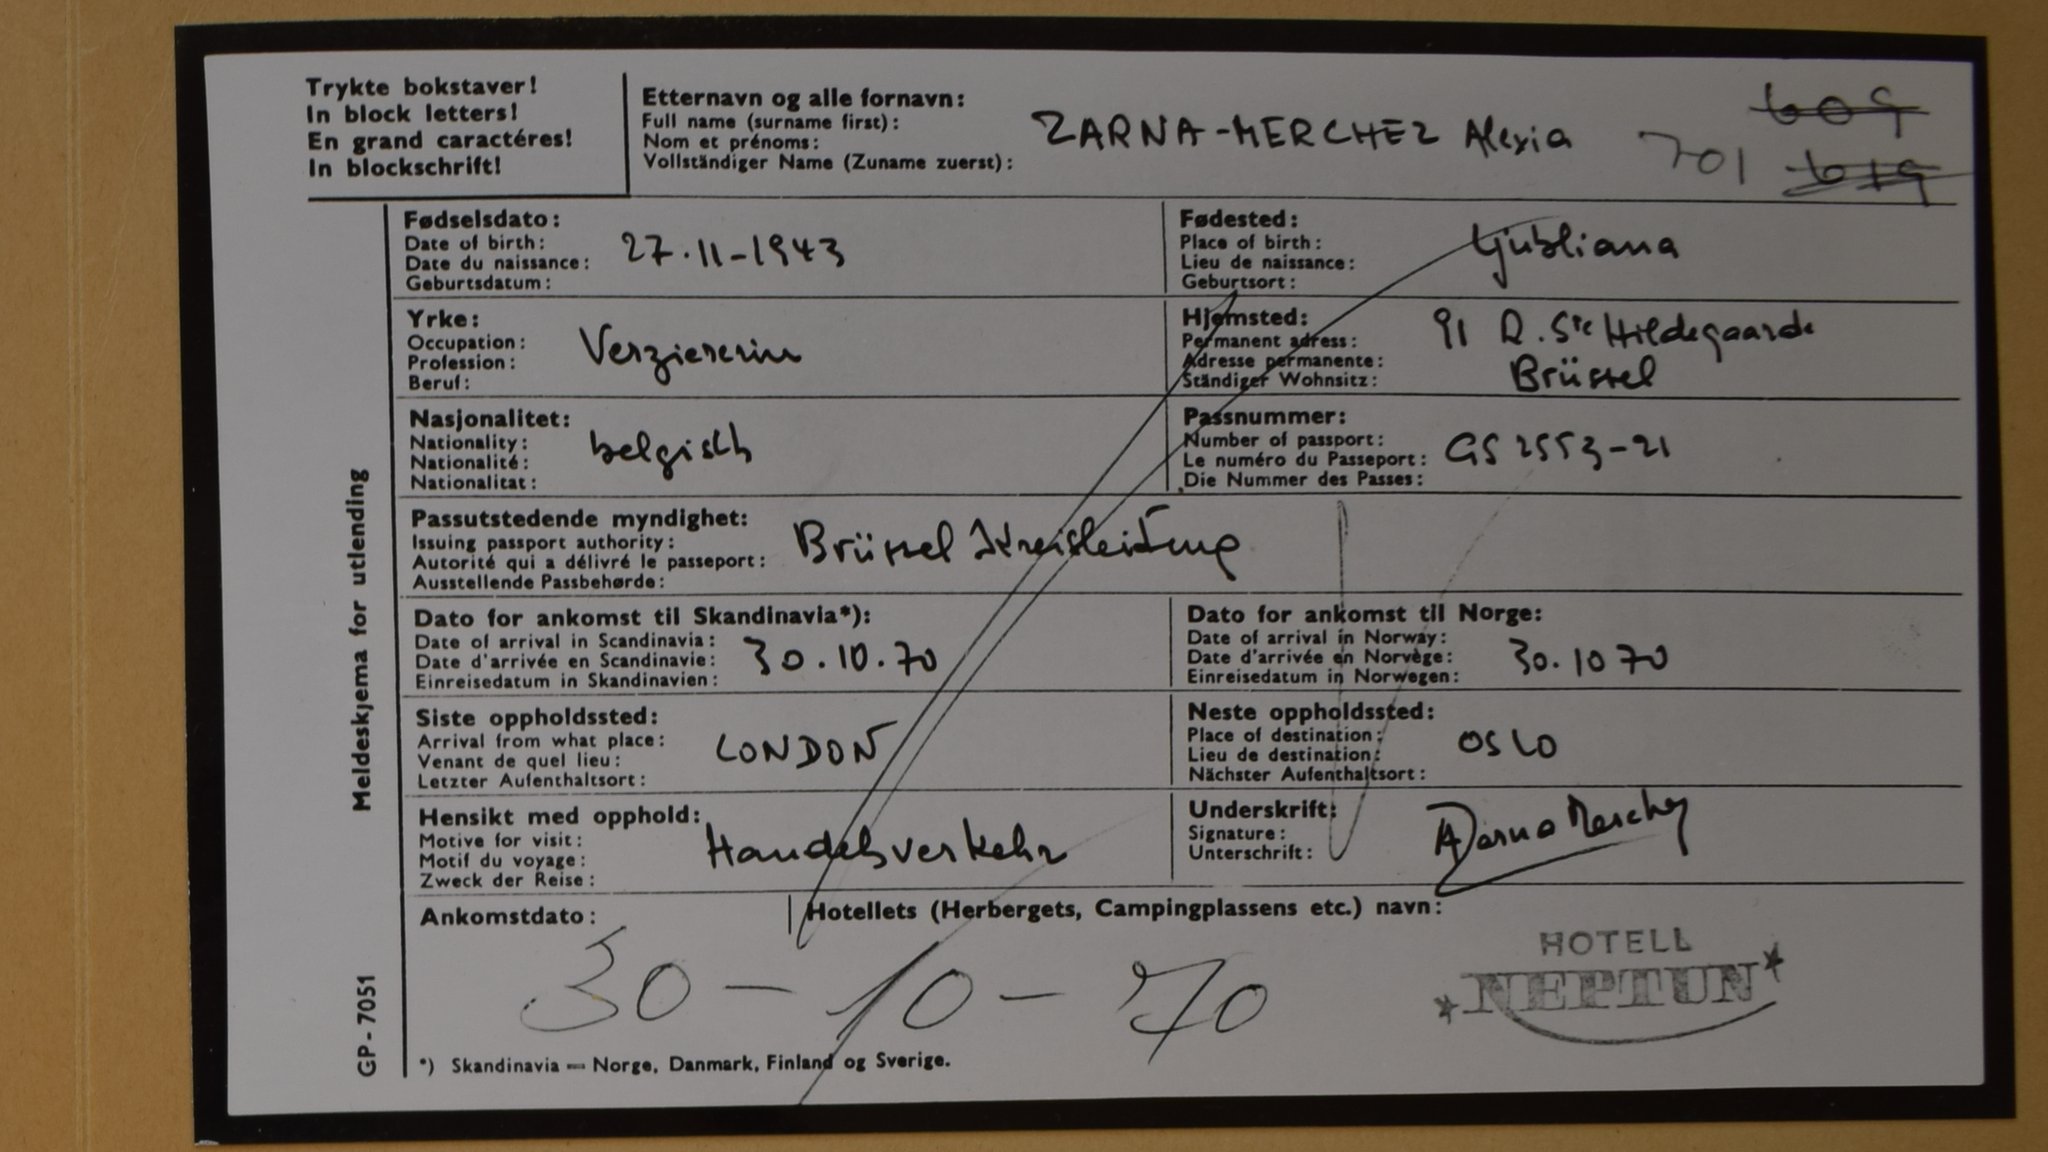 Trykte bokstaver!
In block letters!
En grand caractéres!
In blockschrift!
Etternavn og alle fornavn:
Full name (surname first):
Nom et prénoms:
Vollständiger Name (Zuname zuerst):
ZARNA-MERCHEZ Alexia
609
701 619
Fødselsdato:
Date of birth:
Date du naissance:
Geburtsdatum:
27.11-1943
Fødested:
Place of birth:
Lieu de naissance:
Geburtsort:
Ljubliana
Yrke:
Occupation:
Profession:
Beruf:
Verziererin
Hjemsted:
Permanent adress:
Adresse permanente:
Ständiger Wohnsitz:
91 R. Ste Hildegaarde
Brüssel
Nasjonalitet:
Nationality:
Nationalité:
Nationalitat:
belgisch
Passnummer:
Number of passport:
Le numéro du Passeport:
Die Nummer des Passes:
GS 2553-21
Passutstedende myndighet:
Issuing passport authority:
Autorité qui a délivré le passeport:
Ausstellende Passbehørde:
Brüssel Kreisleitung
Dato for ankomst til Skandinavia*):
Date of arrival in Scandinavia:
Date d'arrivée en Scandinavie:
Einreisedatum in Skandinavien:
30.10.70
Dato for ankomst til Norge:
Date of arrival in Norway:
Date d'arrivée en Norvège:
Einreisedatum in Norwegen:
30.10 70
Siste oppholdssted:
Arrival from what place:
Venant de quel lieu:
Letzter Aufenthaltsort:
LONDON
Neste oppholdssted:
Place of destination:
Lieu de destination:
Nächster Aufenthaltsort:
OSLO
Hensikt med opphold:
Motive for visit:
Motif du voyage:
Zweck der Reise:
Handelsverkehr
Underskrift:
Signature:
Unterschrift:
AZarna Merchez
Ankomstdato:
30-10-70
Hotellets (Herbergets, Campingplassens etc.) navn:
HOTELL
NEPTUN
*) Skandinavia — Norge, Danmark, Finland og Sverige.
Meldeskjema for utlending
GP-7051